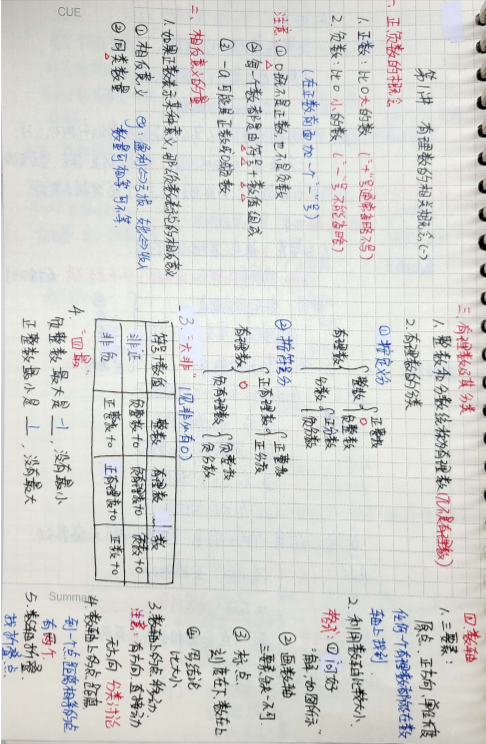 CUE
第1讲 有理数的相关概念(一)
一、正、负数的概念
1. 正数：比0大的数（"+"号通常省略不写）
2. 负数：比0小的数（"－"号不能省略）
（在正数前面加一个"－"号）
注意：①0既不是正数也不是负数
②每一个数都是由符号+数值组成
③ -a可能是正数或0或负数
二、相反意义的量
1. 如果正数表示某种意义，那么负数表示它的相反意义
①相反意义 eg：盈利⇔亏损 支出⇔收入
②同类数量 数量可相等可不等
三、有理数及其分类
1. 整数和分数统称为有理数（π不是有理数）
2. 有理数的分类
①按定义分
有理数 整数 正整数
0
负整数
分数 正分数
负分数
②按符号分
有理数 正有理数 正整数
正分数
0
负有理数 负整数
负分数
3. "六非"（见非必有0）
符号+数值 整数 有理数 数
非正 负整数+0 负有理数+0 负数+0
非负 正整数+0 正有理数+0 正数+0
4. "四最"
负整数最大是 -1，没有最小
正整数最小是 1，没有最大
Summary
四、数轴
1. 三要素：
原点、正方向、单位长度
任何一个有理数都能在数
轴上找到
2. 利用数轴比较大小
①
②画数轴
三要素缺一不可
③标点
④写结论
比大小
3. 数轴上的点的移动
注意：有方向 直接动
无方向 分类讨论
4. 数轴上的点的距离
到一个点距离相等的点
有两个
5. 数轴折叠
找折叠点